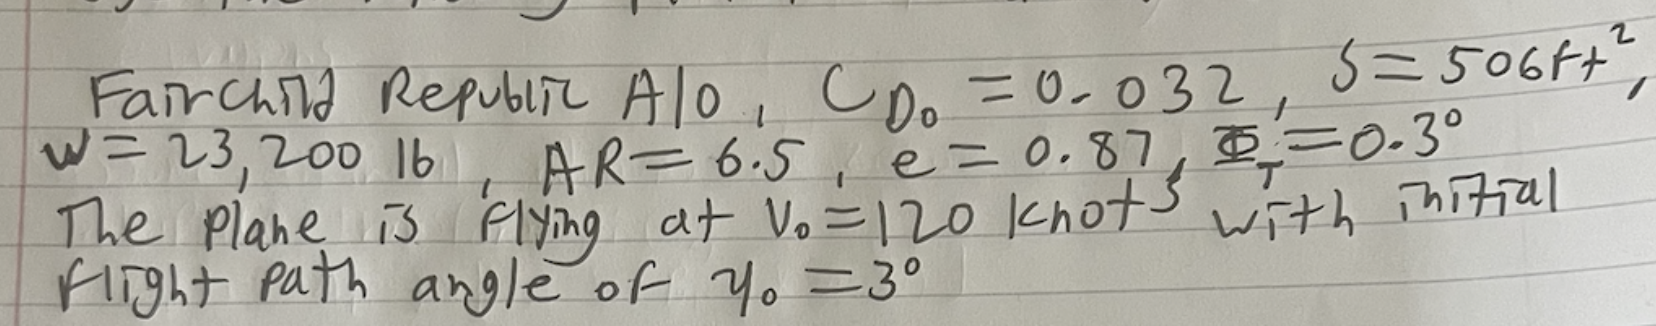 Fairchild Republic A10, C_D₀ = 0.032, S = 506ft²,
W = 23,200 lb, AR = 6.5, e = 0.87, Φ_T = 0.3°
The plane is flying at V₀ = 120 knots with initial
flight path angle of γ₀ = 3°